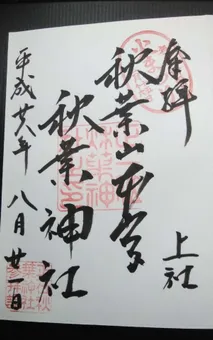 奉拝
上社
秋葉山本宮
秋葉神社
平成廿八年 八月 廿一日